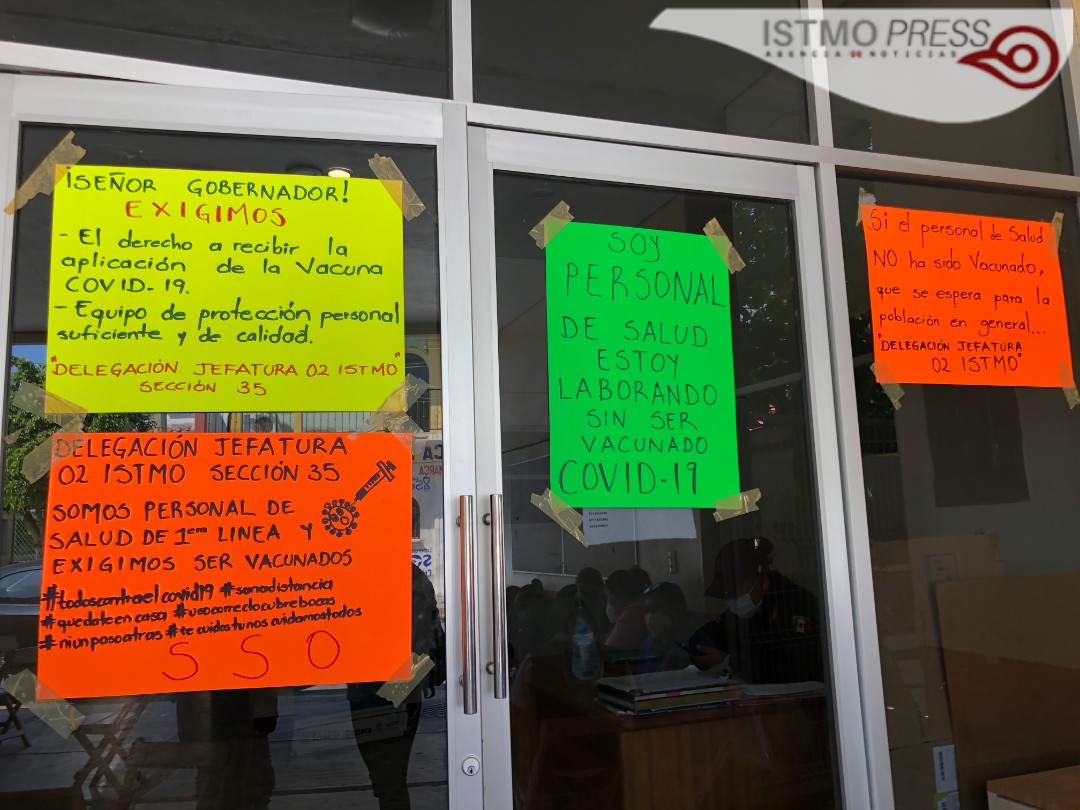 ISTMO PRESS
AGENCIA DE NOTICIAS
¡SEÑOR GOBERNADOR!
EXIGIMOS
- El derecho a recibir la
aplicación de la Vacuna
COVID-19.
- Equipo de protección personal
suficiente y de calidad.
"DELEGACIÓN JEFATURA 02 ISTMO"
SECCIÓN 35
DELEGACIÓN JEFATURA
02 ISTMO SECCIÓN 35
SOMOS PERSONAL DE
SALUD DE 1em LINEA Y
EXIGIMOS SER VACUNADOS
#todoscontraelcovid19 #sanadistancia
#quedateencasa #usocorrectocubrebocas
#niunpasoatras #tecuidastunoscuidamostodos
SSO
SOY
PERSONAL
DE SALUD
ESTOY
LABORANDO
SIN SER
VACUNADO
COVID-19
Si el personal de Salud
NO ha sido Vacunado,
que se espera para la
población en general...
"DELEGACIÓN JEFATURA
02 ISTMO"